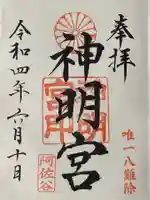 奉拝
唯一八難除
神明宮
阿佐谷
令和四年六月十日